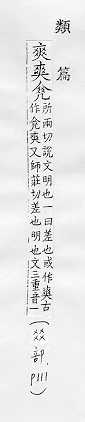 類篇
爽
所兩切說文明也一曰差也或作爽古
作爽又師莊切差也明也文三重音一
(㸚部, P111)